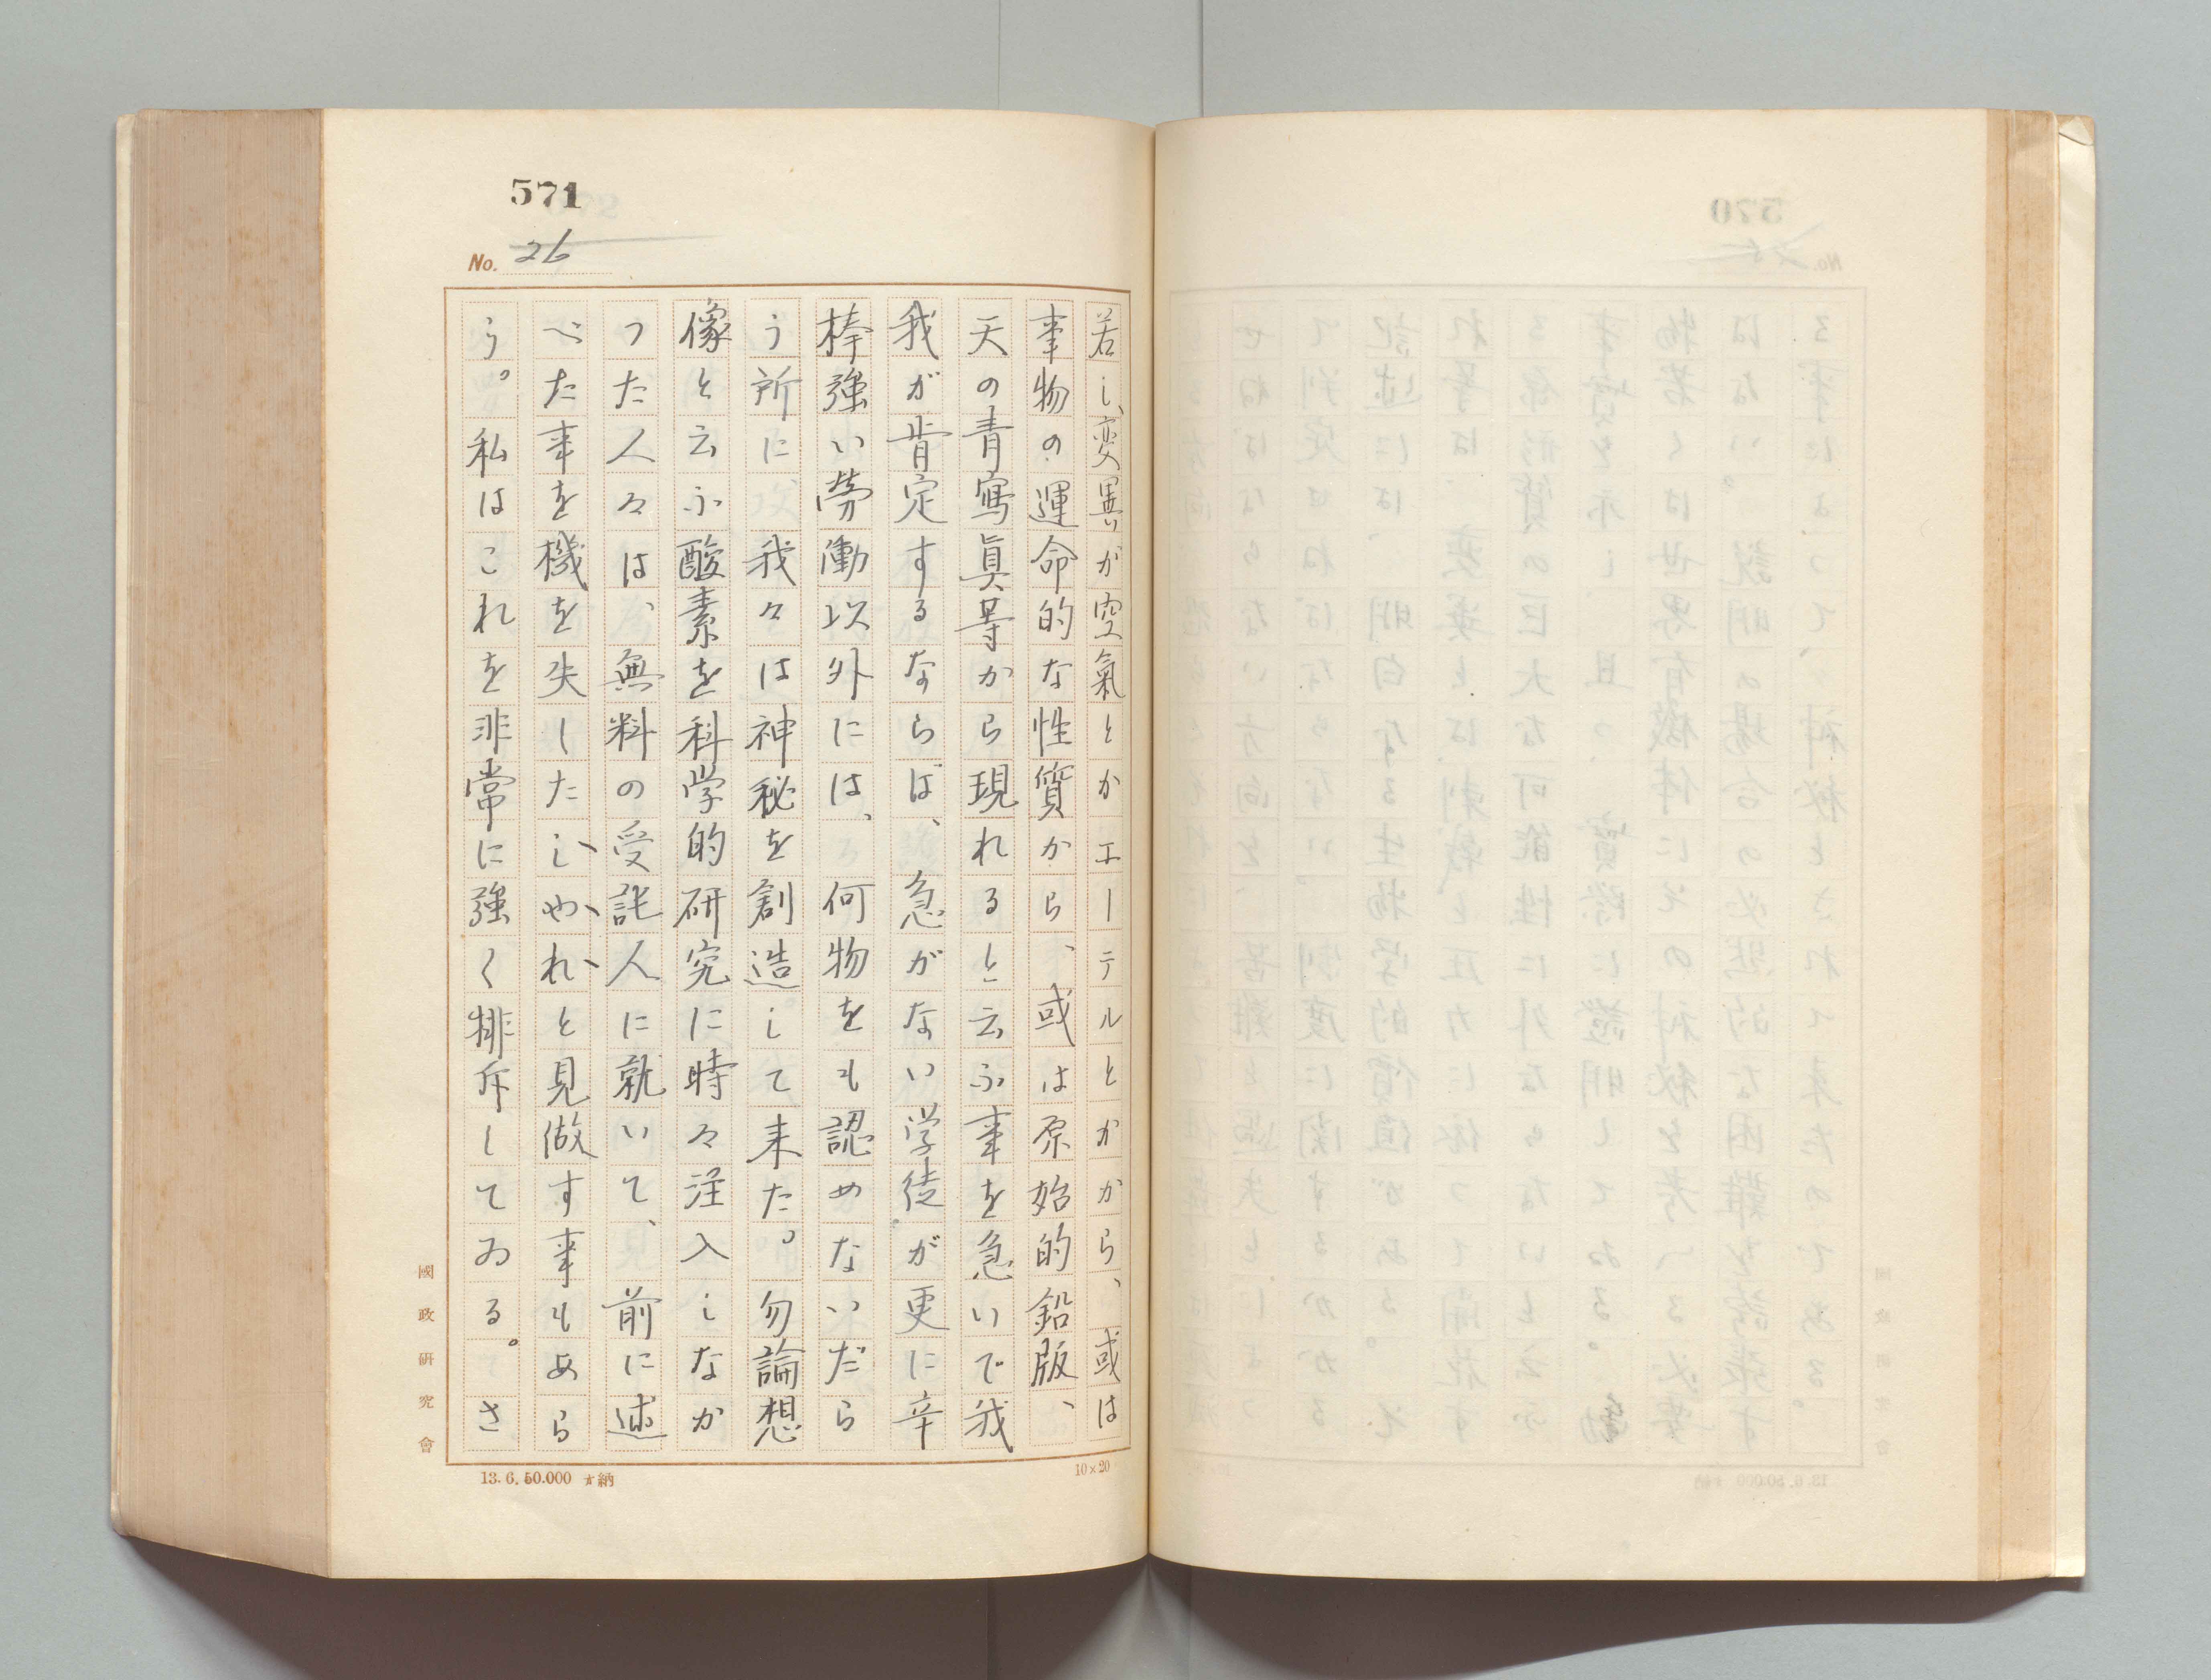 571
No. 26
若し、変異が空氣とかエーテルとかから、或は
事物の運命的な性質から、或は原始的鉛版、
天の青寫眞等から現れると云ふ事を急いで我
我が肯定するならば、急がない学徒が更に辛
棒強い労働以外には、何物をも認めないだら
う所に、我々は神秘を創造して来た。勿論想
像と云ふ酸素を科学的研究に時々注入しなか
つた人々は、無料の受託人に就いて、前に述
べた事を機を失したしやれと見做す事もあら
う。私はこれを非常に強く排斥してゐる。さ
國政研究會
13.6.50.000 納
10×20